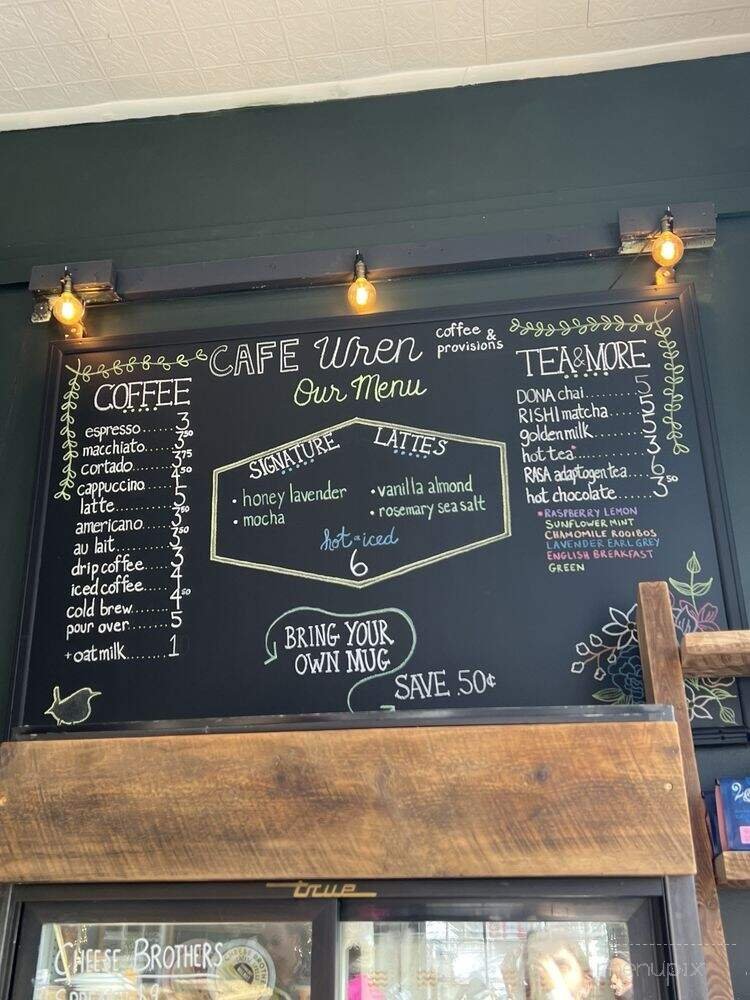 CAFE Wren coffee & provisions
Our Menu
COFFEE
espresso........ 3
macchiato.... 3.50
cortado........ 3.75
cappuccino.... 4.50
latte........... 5
americano..... 3.50
au lait........ 3.50
drip coffee..... 3
iced coffee..... 4
cold brew....... 4.50
pour over....... 5
+ oatmilk........ 1
SIGNATURE LATTES
• honey lavender
• mocha
• vanilla almond
• rosemary sea salt
hot or iced
6
BRING YOUR
OWN MUG
SAVE .50¢
TEA & MORE
DONA chai........ 5
RISHI matcha...... 5
golden milk....... 5
hot tea*.......... 3
RASA adaptogen tea.... 6
hot chocolate...... 3.50
*RASPBERRY LEMON
SUNFLOWER MINT
CHAMOMILE ROOIBOS
LAVENDER EARL GREY
ENGLISH BREAKFAST
GREEN
true
CHEESE BROTHERS
menupix